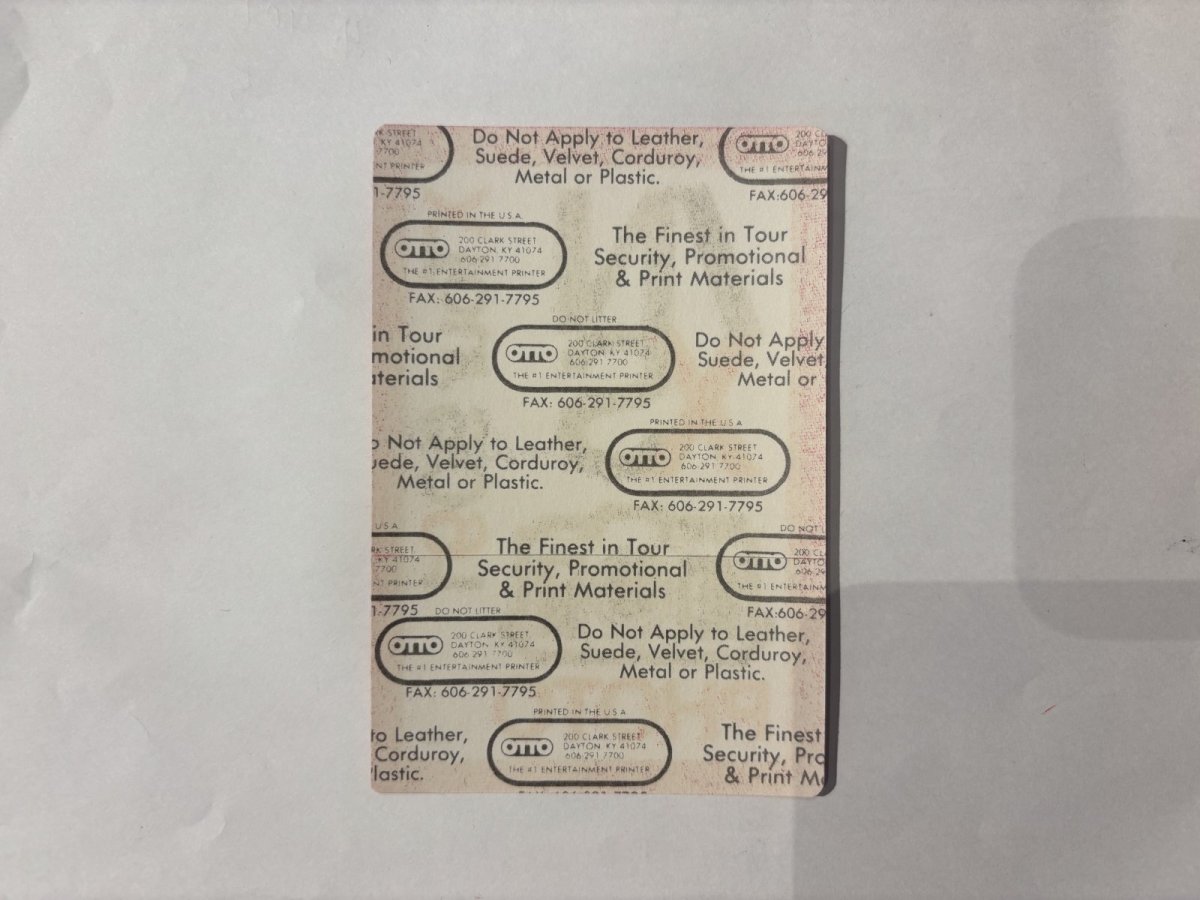 K STREET
KY 41074
7700
NT PRINTER
1-7795
Do Not Apply to Leather,
Suede, Velvet, Corduroy,
Metal or Plastic.
OTTO
200 CL
DAYTO
606-29
THE #1 ENTERTAINM
FAX:606-29
PRINTED IN THE U.S.A.
OTTO
200 CLARK STREET
DAYTON, KY 41074
606-291-7700
THE #1 ENTERTAINMENT PRINTER
FAX: 606-291-7795
The Finest in Tour
Security, Promotional
& Print Materials
in Tour
motional
aterials
DO NOT LITTER
OTTO
200 CLARK STREET
DAYTON, KY 41074
606-291-7700
THE #1 ENTERTAINMENT PRINTER
FAX: 606-291-7795
Do Not Apply
Suede, Velvet
Metal or
o Not Apply to Leather,
uede, Velvet, Corduroy,
Metal or Plastic.
PRINTED IN THE U.S.A.
OTTO
200 CLARK STREET
DAYTON, KY 41074
606-291-7700
THE #1 ENTERTAINMENT PRINTER
FAX: 606-291-7795
U.S.A.
RK STREET
KY 41074
7700
NT PRINTER
1-7795
The Finest in Tour
Security, Promotional
& Print Materials
DO NOT L
OTTO
200 CL
DAYTO
606-29
THE #1 ENTERTAINM
FAX:606-29
DO NOT LITTER
OTTO
200 CLARK STREET
DAYTON, KY 41074
606-291-7700
THE #1 ENTERTAINMENT PRINTER
FAX: 606-291-7795
Do Not Apply to Leather,
Suede, Velvet, Corduroy,
Metal or Plastic.
to Leather,
Corduroy,
lastic.
PRINTED IN THE U.S.A.
OTTO
200 CLARK STREET
DAYTON, KY 41074
606-291-7700
THE #1 ENTERTAINMENT PRINTER
The Finest
Security, Pro
& Print Ma